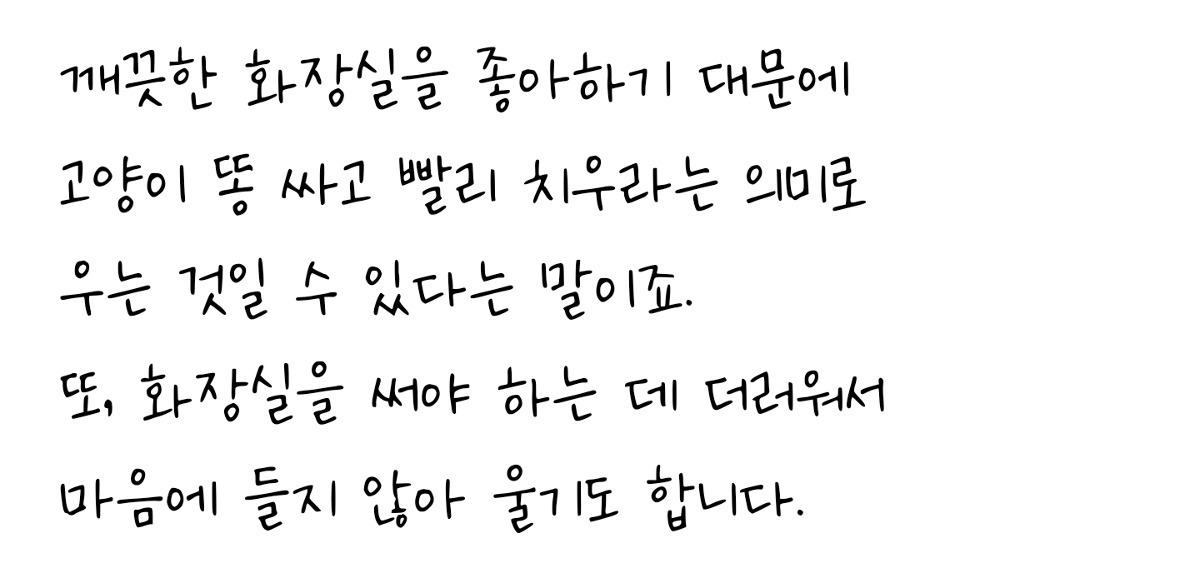 깨끗한 화장실을 좋아하기 대문에
고양이 똥 싸고 빨리 치우라는 의미로
우는 것일 수 있다는 말이죠.
또, 화장실을 써야 하는 데 더러워서
마음에 들지 않아 울기도 합니다.